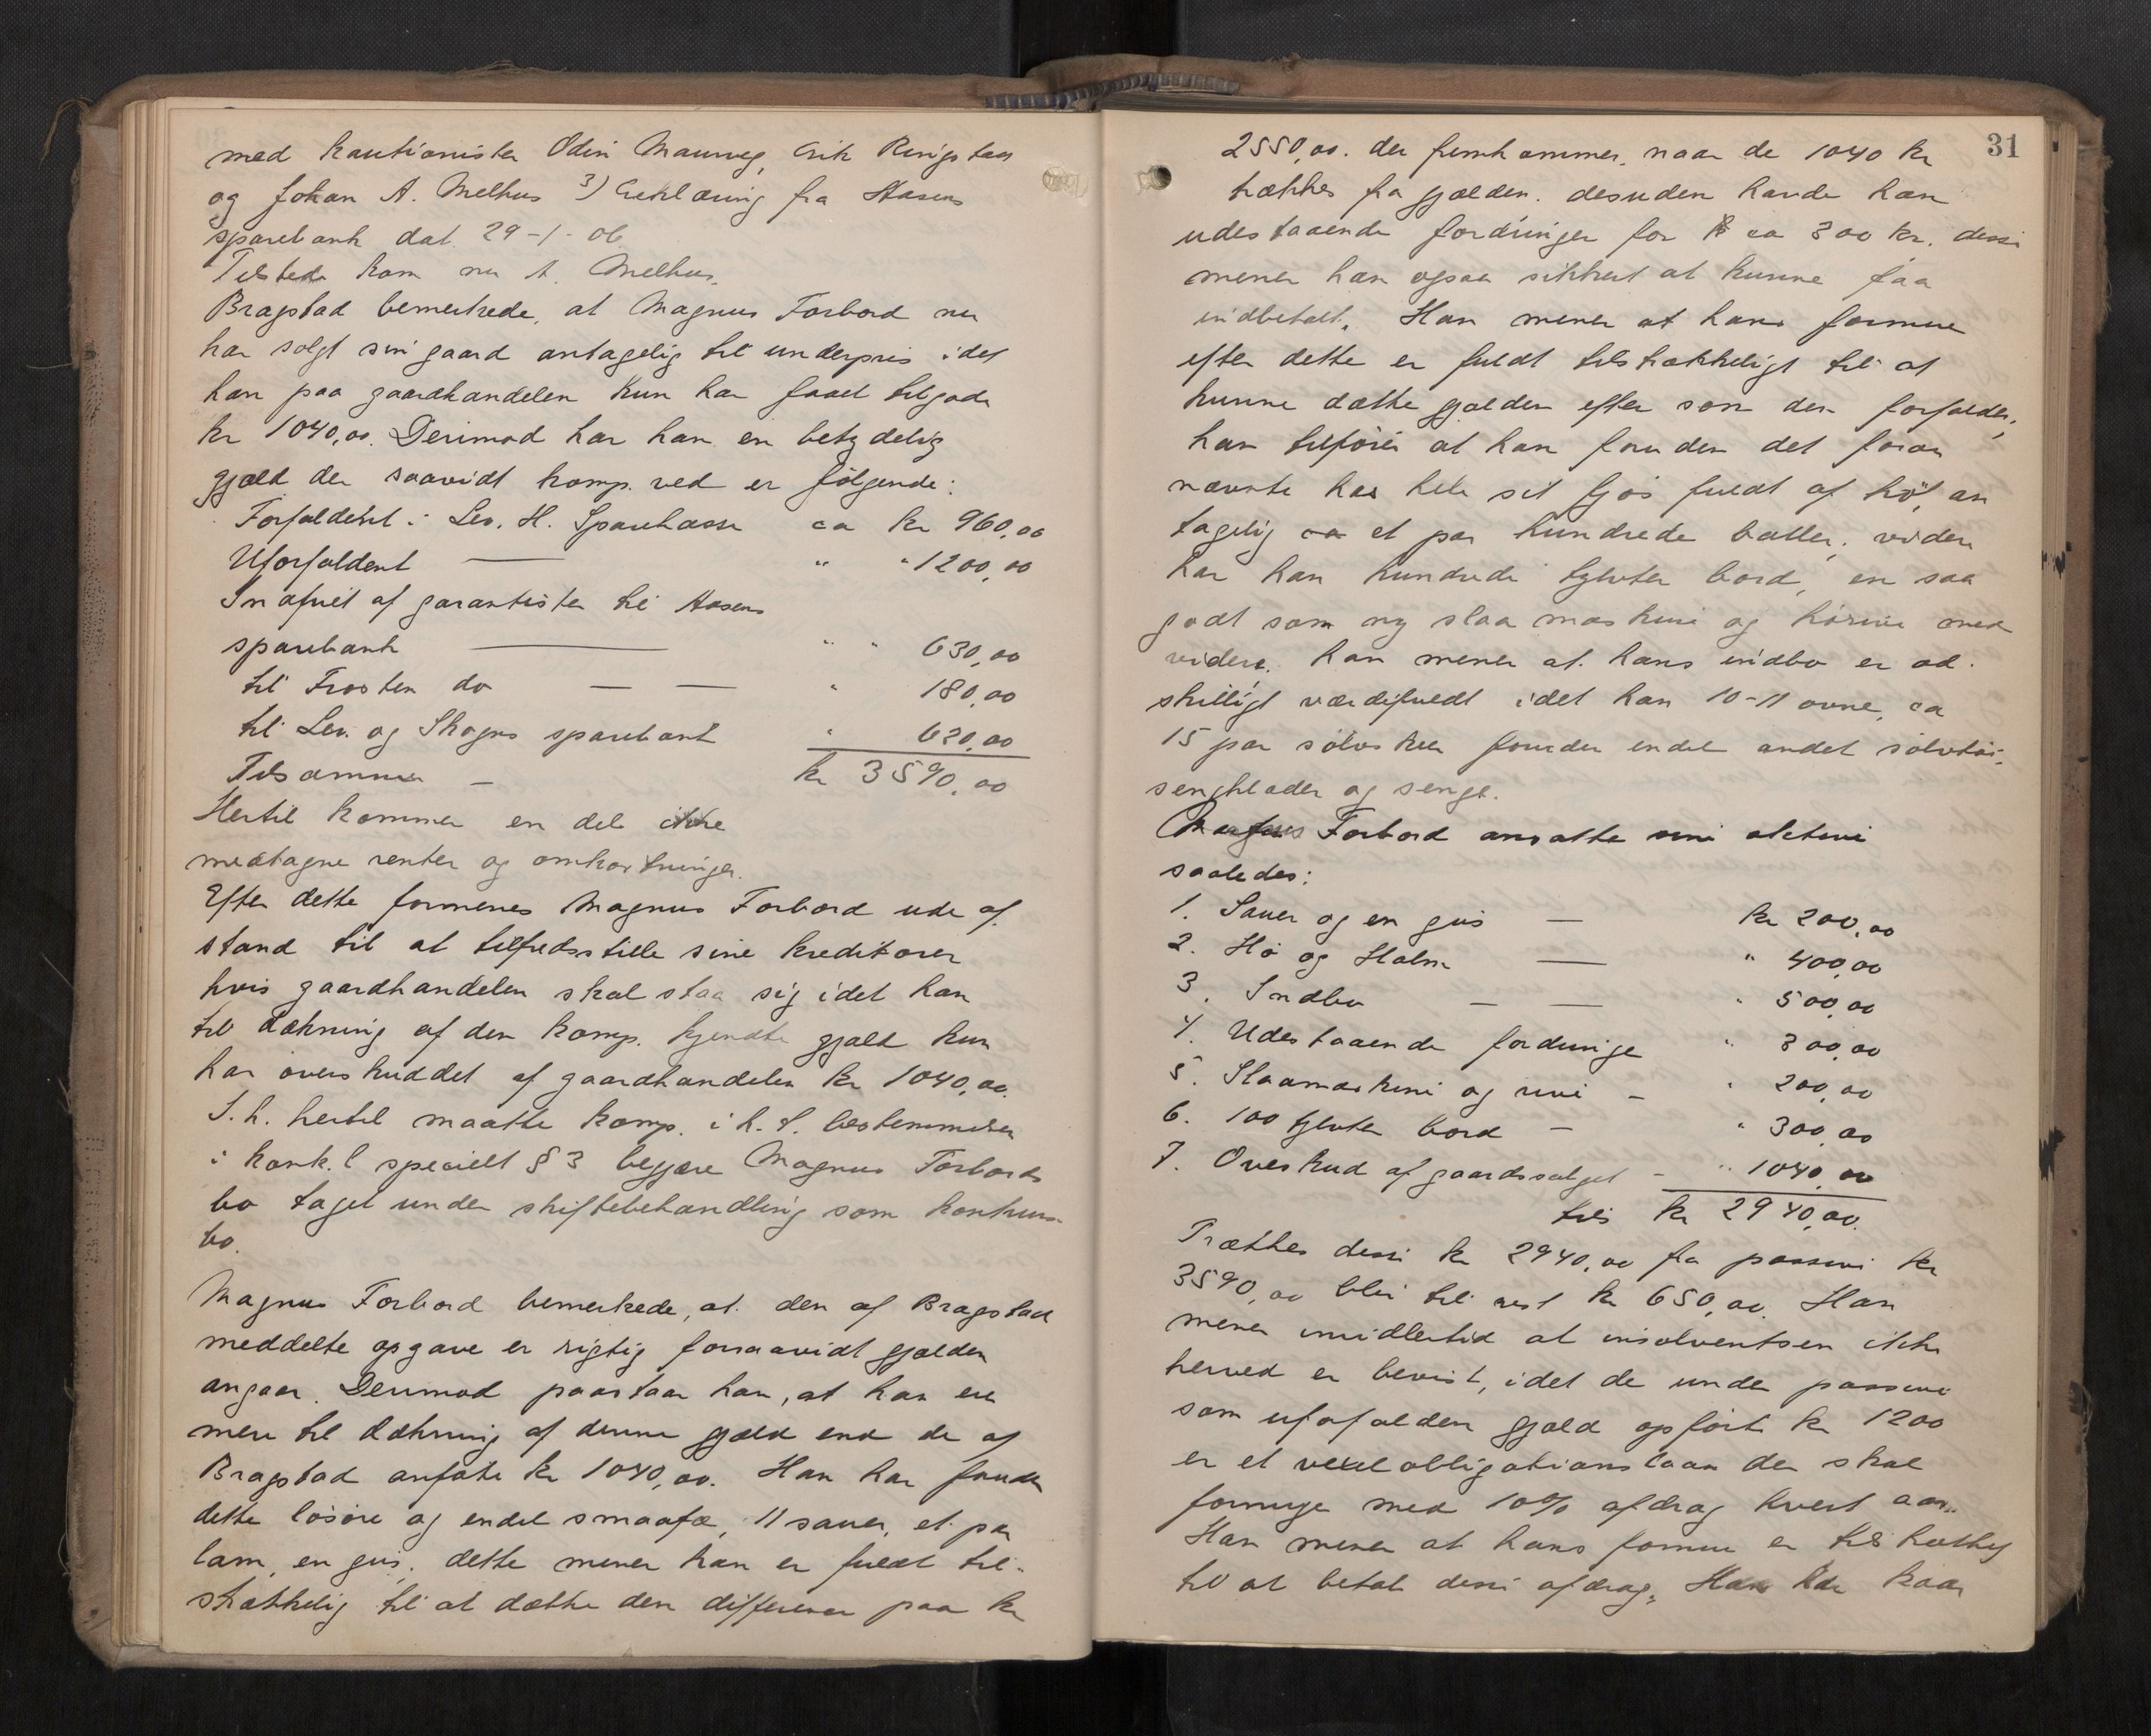 med kautionister Odin Maurveg, Erik Ringstad
og Johan A. Melhus 3) Erklæring fra Aasens
sparebank dat. 29-1-06
Tilstede kom nu A. Melhus.
Bragstad bemerkede, at Magnus Forbord nu
har solgt sin gaard antagelig til underpris idet
han paa gaardhandelen kun har faaet tilgode
kr 1040,00. Derimod har han en betydelig
gjæld der saavidt komp. ved er følgende:
Forfaldent i Lev. H. Sparekasse ca kr 960,00
Uforfaldent — " " 1200,00
Indfriet af garantister til Aasens
sparebank — " " 630,00
til Frosten do — — " 180,00
til Lev. og Skogns sparebank " 620,00
Tilsammen — kr 3590,00
Hertil kommer en del ikke
medtagne renter og omkostninger.
Efter dette formenes Magnus Forbord ude af
stand til at tilfredsstille sine kreditorer
hvis gaardhandelen skal staa sig idet han
til dækning af den komp. kjendte gjæld kun
har overskuddet af gaardhandelen kr 1040,00.
I. h. hertil maatte komp. i h. t. bestemmelsen
i konk. l specielt § 3 begjære Magnus Forbords
bo taget under skiftebehandling som konkurs-
bo.
Magnus Forbord bemerkede, at den af Bragstad
meddelte opgave er rigtig forsaavidt gjælden
angaar. Derimod paastaar han, at han er
mere til dækning af denne gjæld end de af
Bragstad anførte kr 1040,00. Han har foruden
dette løsøre og endel smaafæ, 11 sauer, et par
lam, en gris, dette mener han er fuldt til-
strækkelig til at dække den differense paa kr
31
2550,00. der fremkommer, naar de 1040 kr
trækkes fra gjælden. desuden havde han
udestaaende fordringer for ca 300 kr. disse
mener han ogsaa sikkert at kunne faa
indbetalt. Han mener at hans formue
efter dette er fuldt tilstrækkeligt til at
kunne dække gjælden efter som den forfalder,
han tilføier at han foruden det foran
nævnte har hele sit fjøs fuldt af hø, an
tagelig ca et par hundrede batler, videre
har han hundrede tylvter bord, en saa
godt som ny slaamaskine og hørive med
videre. Han mener at hans indbo er ad-
skilligt værdifuldt idet han 10-11 ovne, ca
15 par sølvskeer foruden endel andet sølvtøi,
sengklæder og senge.
Magnus Forbord ansatte sine aktiva
saaledes:
1. Sauer og en gris — kr 200,00
2. Hø og Halm — " 400,00
3. Indbo — — " 500,00
4. Udestaaende fordringer " 300,00
5. Slaamaskine og rive — " 200,00
6. 100 tylvter bord — " 300,00
7. Overskud af gaardssalget — " 1040,00
tils kr 2940,00.
Trækkes disse kr 2940,00 fra passiva kr
3590,00 blir til rest kr 650,00. Han
mener imidlertid at insolventsen ikke
herved er bevist, idet de under passiva
som uforfalden gjæld opførte kr 1200
er et vexelobligationslaan der skal
fornyes med 10% afdrag hvert aar.
Han mener at hans formue er tilstrækkelig
til at betale disse afdrag. Han